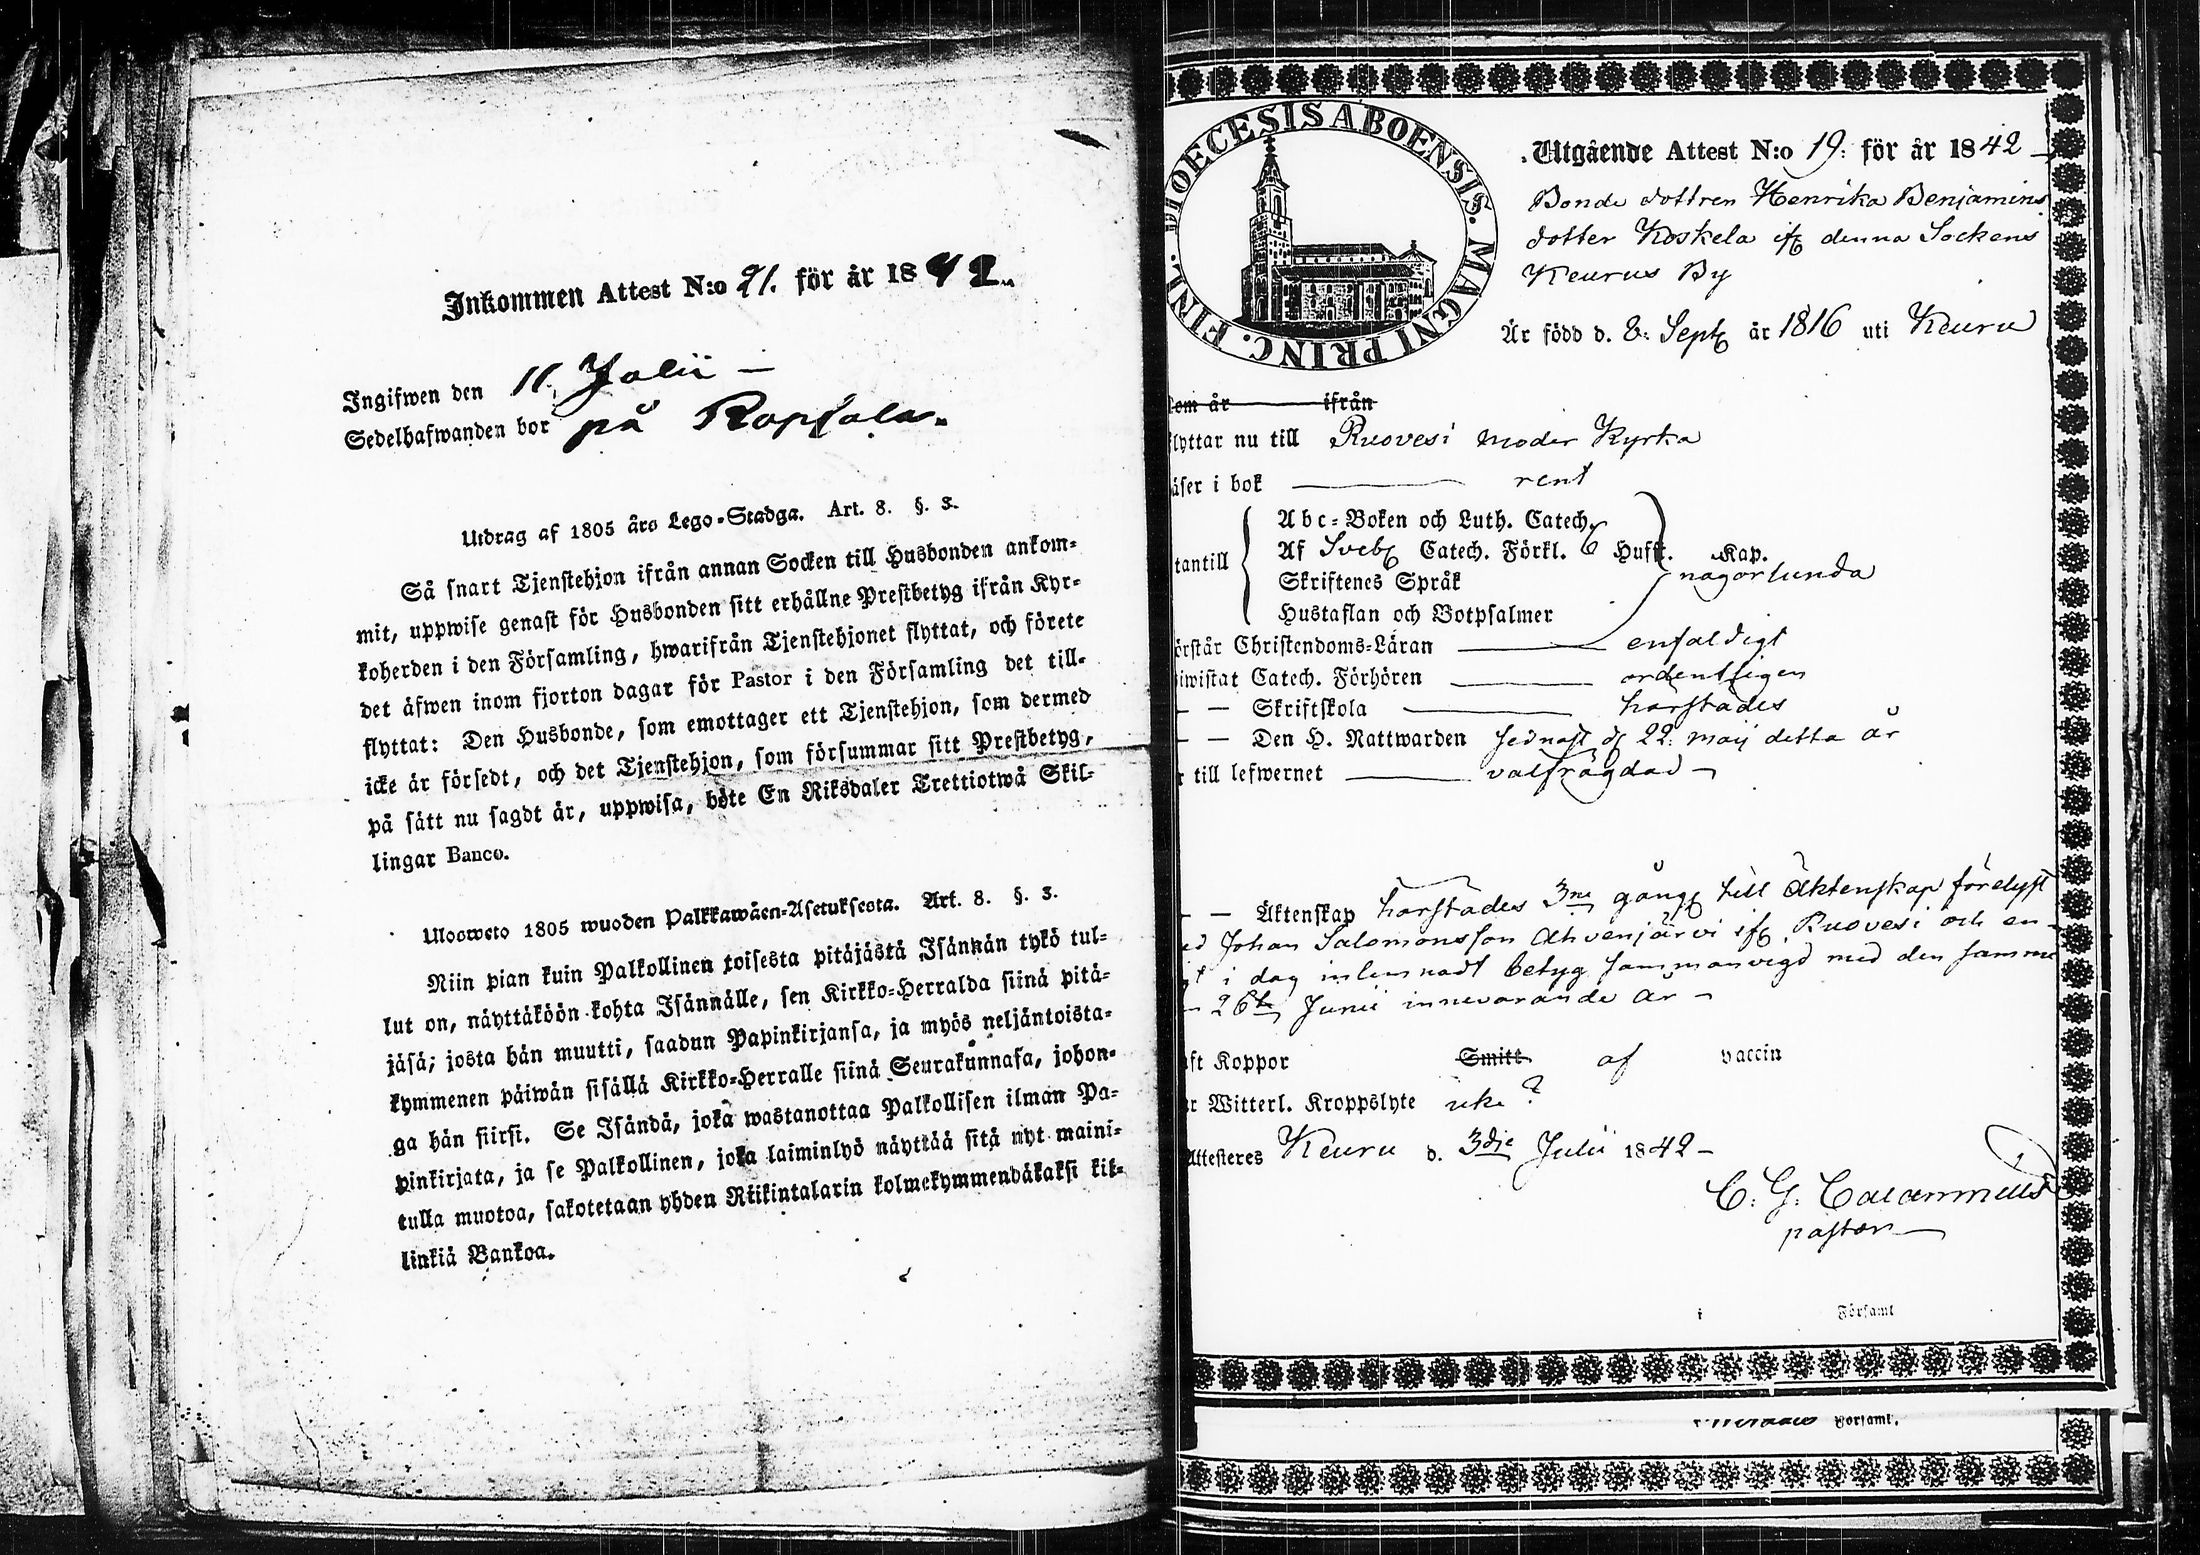 Inkommen Attest N:o 91. för år 1842.
Ingifwen den 11. Julii –
Sedelhafwanden bor på Ropsala.
Utdrag af 1805 års Lego-Stadga. Art. 8. §. 3.
Så snart Tjenstehjon ifrån annan Socken till Husbonden ankom-
mit, uppwise genast för Husbonden sitt erhållne Prestbetyg ifrån Kyr-
koherden i den Församling, hwarifrån Tjenstehjonet flyttat, och förete
det äfwen inom fjorton dagar för Pastor i den Församling det till-
flyttat: Den Husbonde, som emottager ett Tjenstehjon, som dermed
icke är försedt, och det Tjenstehjon, som försummar sitt Prestbetyg,
på sätt nu sagdt är, uppwisa, böte En Riksdaler Trettiotwå Skil-
lingar Banco.
Ulosweto 1805 wuoden Palkkawäen-Asetuksesta. Art. 8. §. 3.
Niin pian kuin Palkollinen toisesta pitäjästä Isännän tykö tul-
lut on, näyttäköön kohta Isännälle, sen Kirkko-Herralda siinä pitä-
jäsä; josta hän muutti, saadun Papinkirjansa, ja myös neljäntoista-
kymmenen päiwän sisällä Kirkko-Herralle siinä Seurakunnasa, johon-
ga hän siirsi. Se Isändä, joka wastanottaa Palkollisen ilman Pa-
pinkirjata, ja se Palkollinen, joka laiminlyö näyttää sitä nyt maini-
tulla muotoa, sakotetaan yhden Riikintalarin kolmekymmendäkaksi kil-
linkiä Bankoa.
DIOECESIS ABOENSIS. MAGNI PRINC. FINL.
Utgående Attest N:o 19: för år 1842 –
Bonde dottren Henrika Benjamins
dotter Koskela if denna Sockens
Keurus By
Är född d. 8: Sept år 1816 uti Keuru
som år ifrån
flyttar nu till Ruovesi moder Kyrka
läser i bok rent
utantill Abc-Boken och Luth. Catech.
Af Sveb Catech. Förkl. Husst. Kap.
någorlunda
Skriftenes Språk
Hustaflan och Botpsalmer
örstår Christendoms-Läran enfaldigt
iwistat Catech. Förhören ordentligen
– – Skriftskola harstädes
– – Den H. Nattwarden sednast d 22: maij detta år
r till lefwernet välfrägdad –
– – Äktenskap harstädes 3ne gång till Äktenskap förelyst
ed Johan Salomonsson Ahvenjärvi if Ruovesi och en-
gt i dag inlemnadt betyg sammanvigd med den samme
– 26te Junii innevarande år –
aft Koppor Smitt af vaccin
r Witterl. Kroppslyte icke?
Attesteres Keuru d. 3dje Julii 1842 –
C. G. Calamnius
pastor
i Församl
Församl.